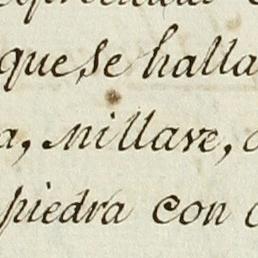 que se halla
a, ni llave, c
piedra con c